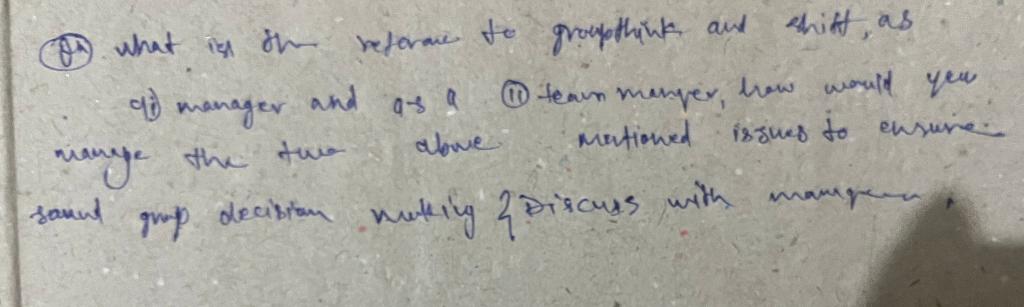 Qn what is the referance to groupthink and shift, as
i) manager and as a ii) team manger, how would you
manage the two above mentioned issues to ensure
sound group decision making & Discuss with